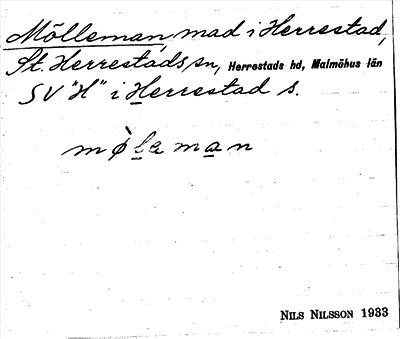 Mölleman, mad i Herrestad,
St. Herrestads sn, Herrestads hd, Malmöhus län
SV "H" i Herrestad s.
mø̀laman
NILS NILSSON 1933